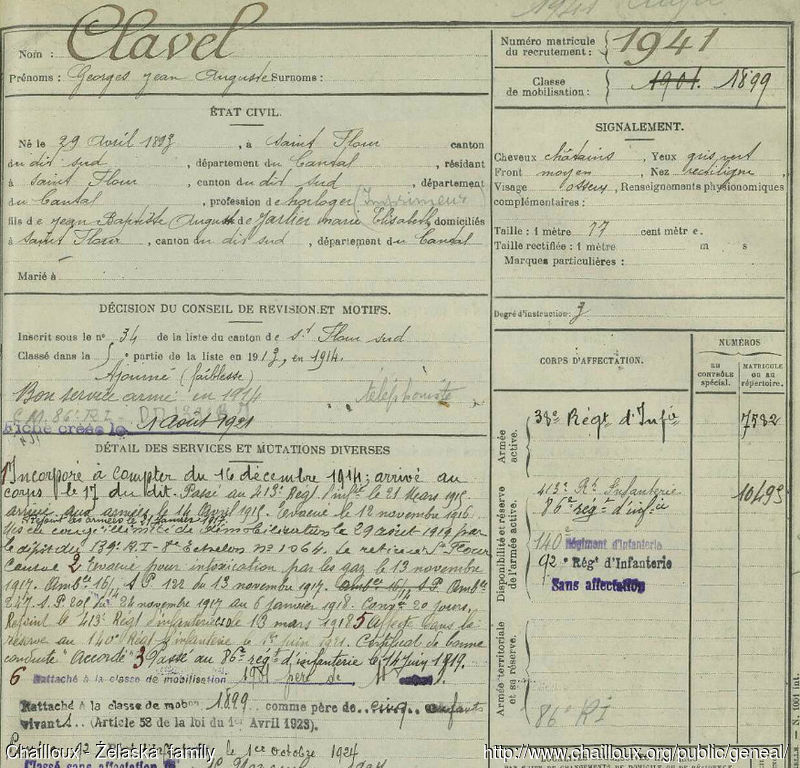 Nom : Clavel
Prénoms : Georges Jean Auguste Surnoms :
Numéro matricule du recrutement : 1941
Classe de mobilisation : 1901. 1899
ÉTAT CIVIL.
Né le 29 Avril 1893, à Saint Flour canton
du dit sud, département du Cantal, résidant
à Saint Flour, canton du dit sud, département
du Cantal, profession de horloger (Imprimeur)
fils de Jean Baptiste Auguste et de Jarlier Marie Elisabeth domiciliés
à Saint Flour, canton du dit sud, département du Cantal
Marié à
SIGNALEMENT.
Cheveux châtains, Yeux gris vert
Front moyen, Nez rectiligne,
Visage osseux, Renseignements physionomiques
complémentaires :
Taille : 1 mètre 77 centimètres.
Taille rectifiée : 1 mètre m s
Marques particulières :
Degré d'instruction : 3
DÉCISION DU CONSEIL DE REVISION ET MOTIFS.
Inscrit sous le n° 34 de la liste du canton de St Flour sud
Classé dans la 5 partie de la liste en 1913, en 1914.
Ajourné (faiblesse)
Bon service armé en 1914 téléphoniste
C.M. 86e R.I.
Fiche créée le 1 Aout 1921
DÉTAIL DES SERVICES ET MUTATIONS DIVERSES
1° Incorporé à compter du 16 décembre 1914; arrivé au
corps le 17 du dit. Passé au 413e Régt d'Infie le 21 Mars 1915.
arrivé aux armées le 14 Avril 1915. Evacué le 12 novembre 1916.
Rejoint les armées le 31 Janvier 1917
Mis en congé illimité de démobilisation le 29 août 1919 par
le dépôt du 139e R.I - 8e Echelon n° 1064. Se retire à St Flour
Cantal 2 Evacué pour intoxication par les gaz le 13 novembre
1917. Ambce 16/14 S.P. 122 du 13 novembre 1917. Ambce 16/14 S.P. Ambce
247. S.P. 205 du 24 novembre 1917 au 6 janvier 1918. Convce 20 jours.
Rejoint le 413e Régt d'infanterie le 13 mars 1918 5 Affecté dans la
réserve au 140e Régt d'infanterie le 1er juin 1921. Certificat de bonne
conduite "Accordé" 3 Passé au 86e régt d'infanterie le 14 Juin 1919.
6 Rattaché à la classe de mobilisation 1901 père de
Rattaché à la classe de mobon 1899 comme père de cinq enfants
vivants. (Article 58 de la loi du 1er Avril 1923).
le 1er octobre 1924
Classé sans affectation
CORPS D'AFFECTATION.
NUMÉROS
AU CONTRÔLE spécial.
MATRICULE OU AU répertoire.
Armée active.
38e Régt d'Infie 7782
Disponibilité et réserve de l'armée active.
413e Rt Infanterie 10493
86e régt d'infie
140 Régiment d'Infanterie
92e Régt d'Infanterie
Sans affectation
Armée territoriale et sa réserve.
86e RI
Chailloux - Zelaska family
http://www.chailloux.org/public/geneal/